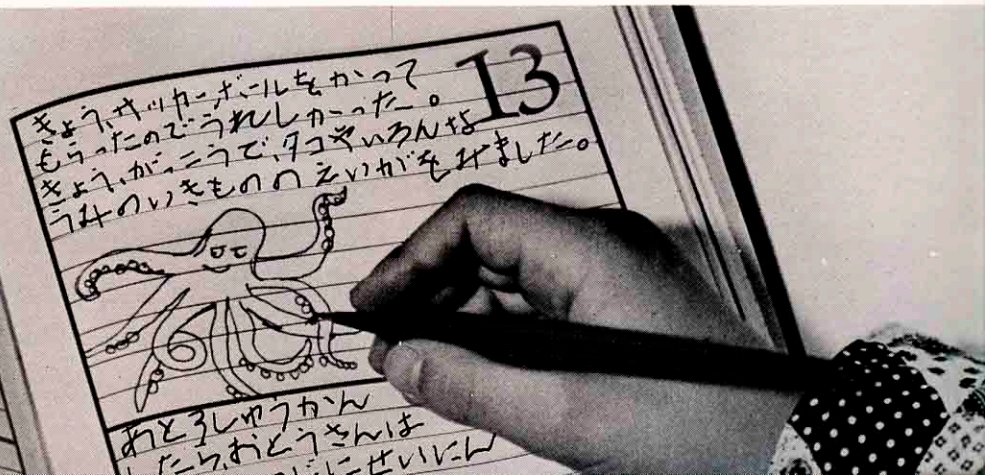 13
きょう、サッカーボールをかって
もらったのでうれしかった。
きょう、がっこうで、タコやいろんな
うみのいきもののえいがをみました。
あと3しゅうかん
したら、おとうさんは
にせいにん